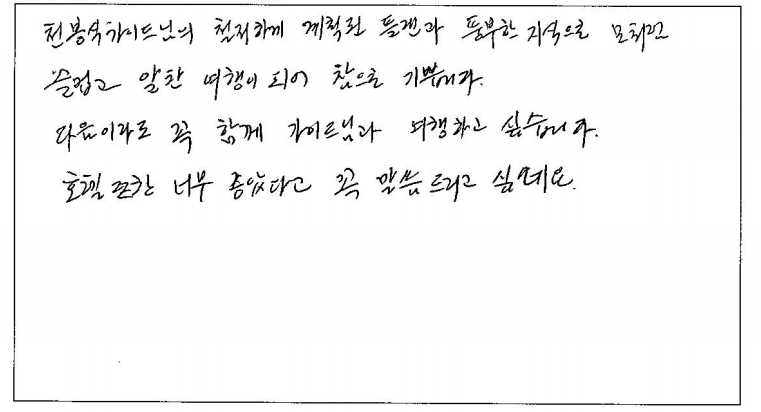 천봉석가이드님의 철저하게 계획된 플랜과 풍부한 지식으로 모처럼
즐겁고 알찬 여행이 되어 참으로 기쁩니다.
다음이라도 꼭 함께 가이드님과 여행하고 싶습니다.
호텔 또한 너무 좋았다고 꼭 말씀드리고 싶네요.